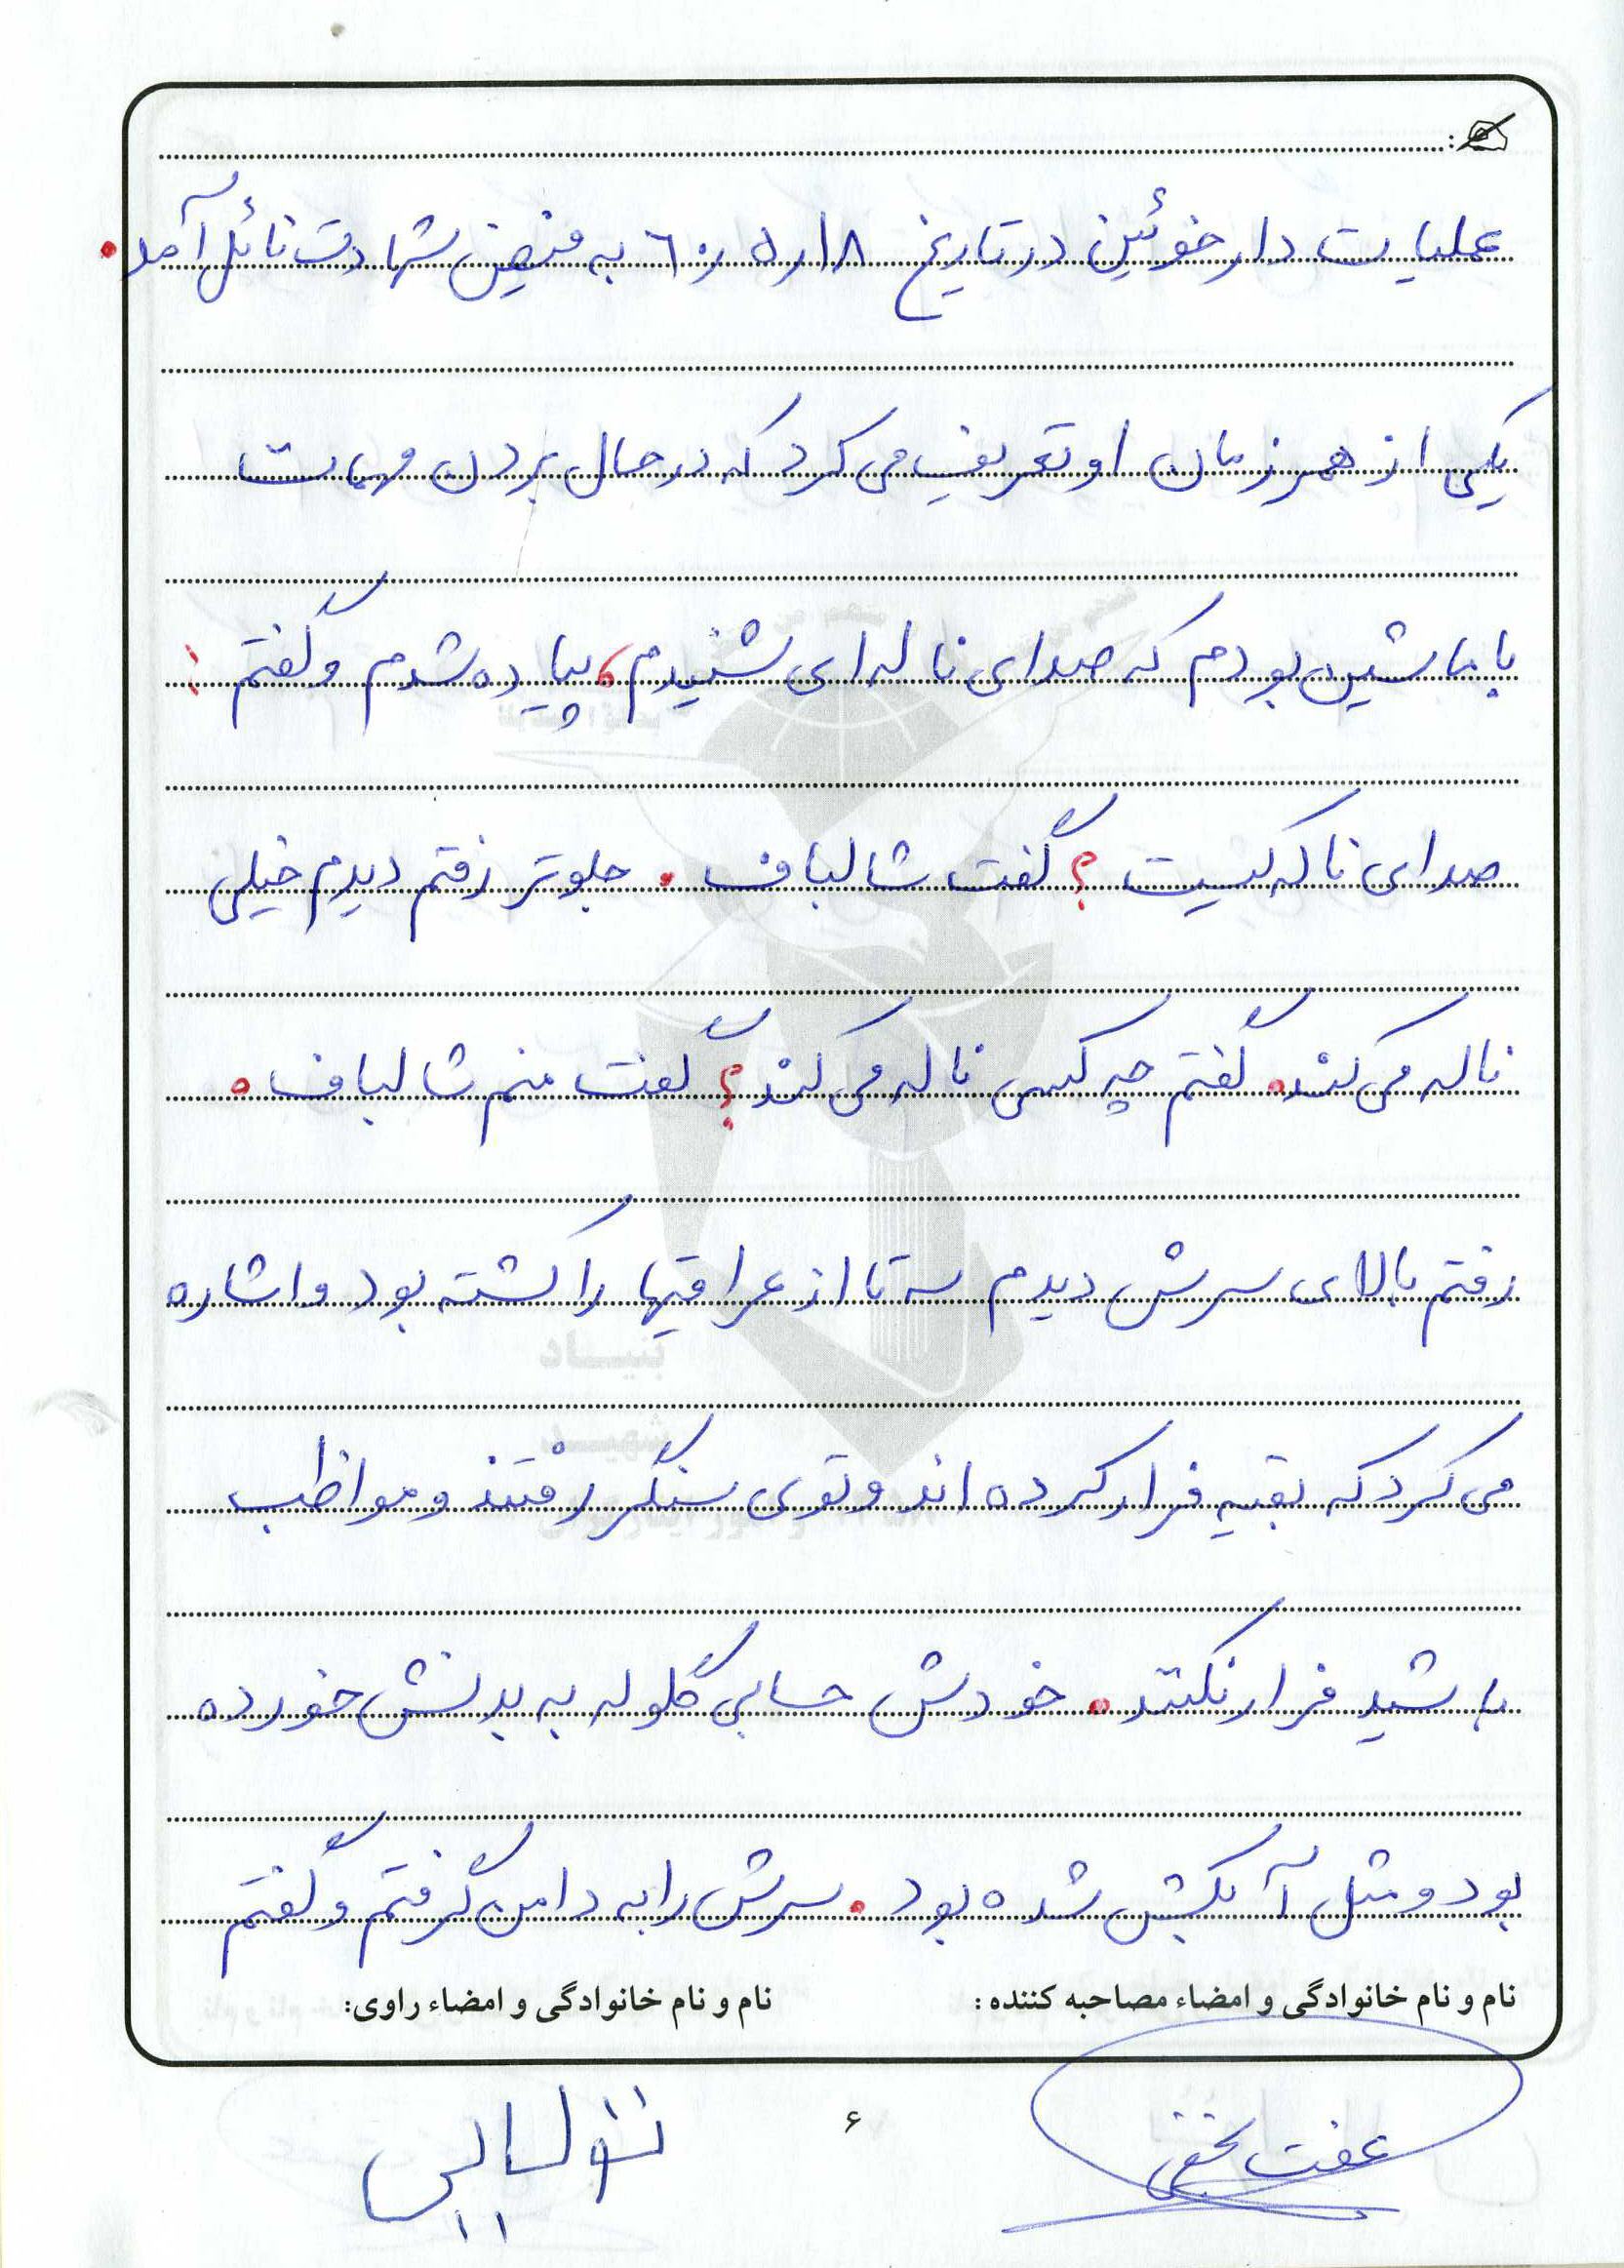 عملیات دارخوئین در تاریخ ۱۸ر۵ر۶۰ به فیض شهادت نائل آمد.
یکی از همرزمان او تعریف می کرد که در حال بردن مهمات
با ماشین بودم که صدای ناله ای شنیدم، پیاده شدم و گفتم:
صدای ناله کیست؟ گفت شالباف. جلوتر رفتم دیدم خیلی
ناله می کند. گفتم چه کسی ناله می کند؟ گفت منم شالباف.
رفتم بالای سرش دیدم سه تا از عراقیها را کشته بود و اشاره
می کرد که بقیه فرار کرده اند و توی سنگر رفتند و مواظب
باشید فرار نکنند. خودش حسابی گلوله به بدنش خورده
بود و مثل آبکش شده بود. سرش را به دامن گرفتم و گفتم
نام و نام خانوادگی و امضاء مصاحبه کننده: نام و نام خانوادگی و امضاء راوی:
عفت ۶
بنیاد
شهید